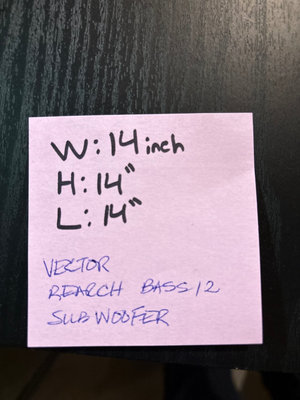 W: 14 inch
H: 14"
L: 14"
VECTOR
REARCH BASS 12
SUBWOOFER